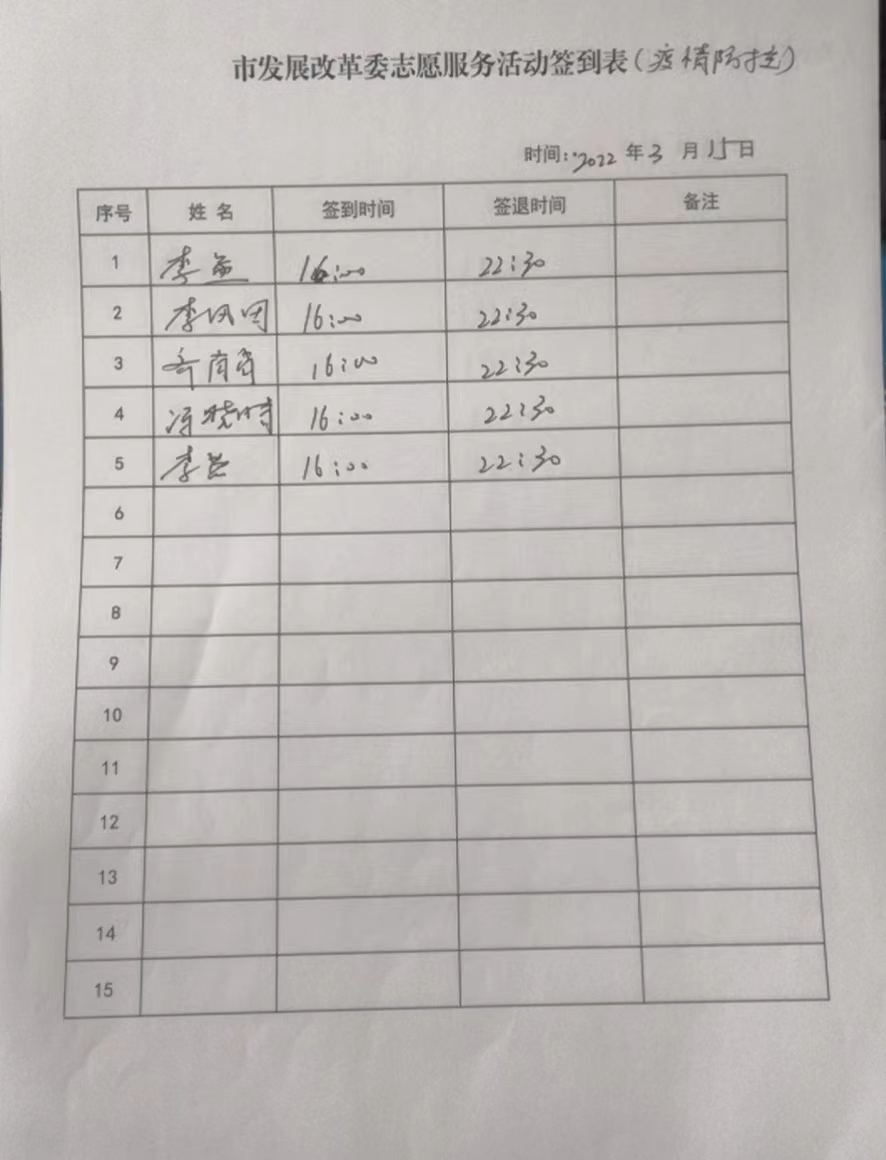 市发展改革委志愿服务活动签到表(疫情防控)
时间:2022年3月15日
序号 姓名 签到时间 签退时间 备注
1 李 16:00 22:30
2 李 16:00 22:30
3 16:00 22:30
4 冯晓 16:00 22:30
5 李 16:00 22:30
6
7
8
9
10
11
12
13
14
15